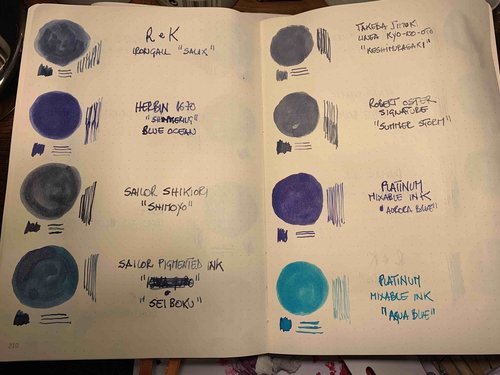 R e K
IRONGALL "SALIX"
HERBIN 1670
"SHIMMERING"
BLUE OCEAN
SAILOR SHIKIORI
"SHIMOYO"
SAILOR PIGMENTED INK
"SEIBOKU"
210
LINEA KYO-NO-OTO
"KESHIMURASAKI"
ROBERT OSTER
SIGNATURE
"SUMMER STORM"
PLATINUM
MIXABLE INK
"AURORA BLUE"
PLATINUM
MIXABLE INK
"AQUA BLUE"